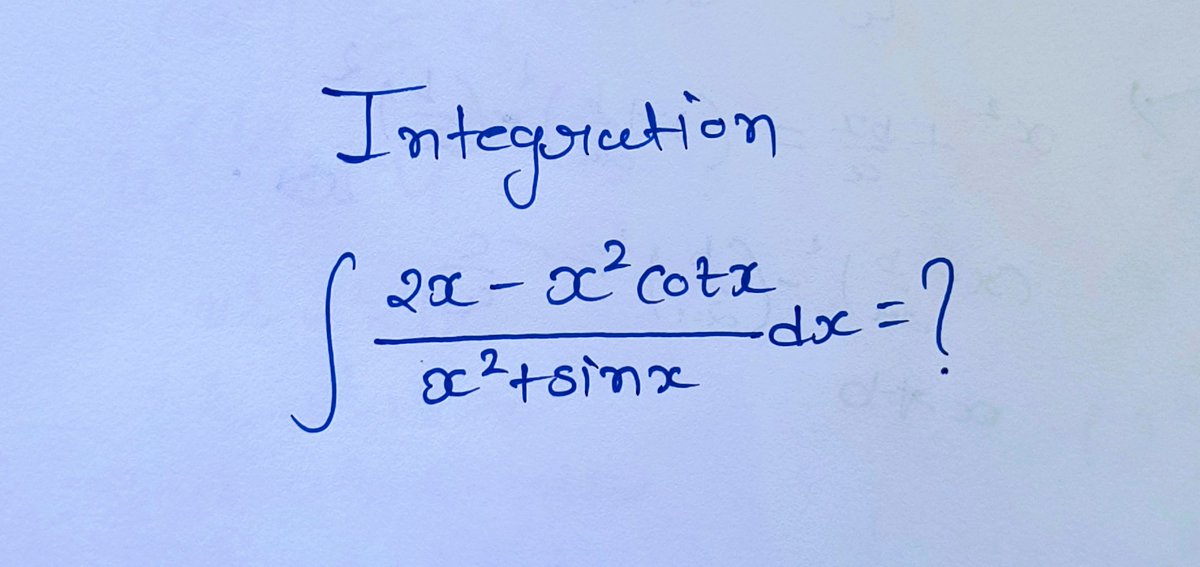 Integration
∫ (2x - x² cotx)/(x² + sinx) dx = ?